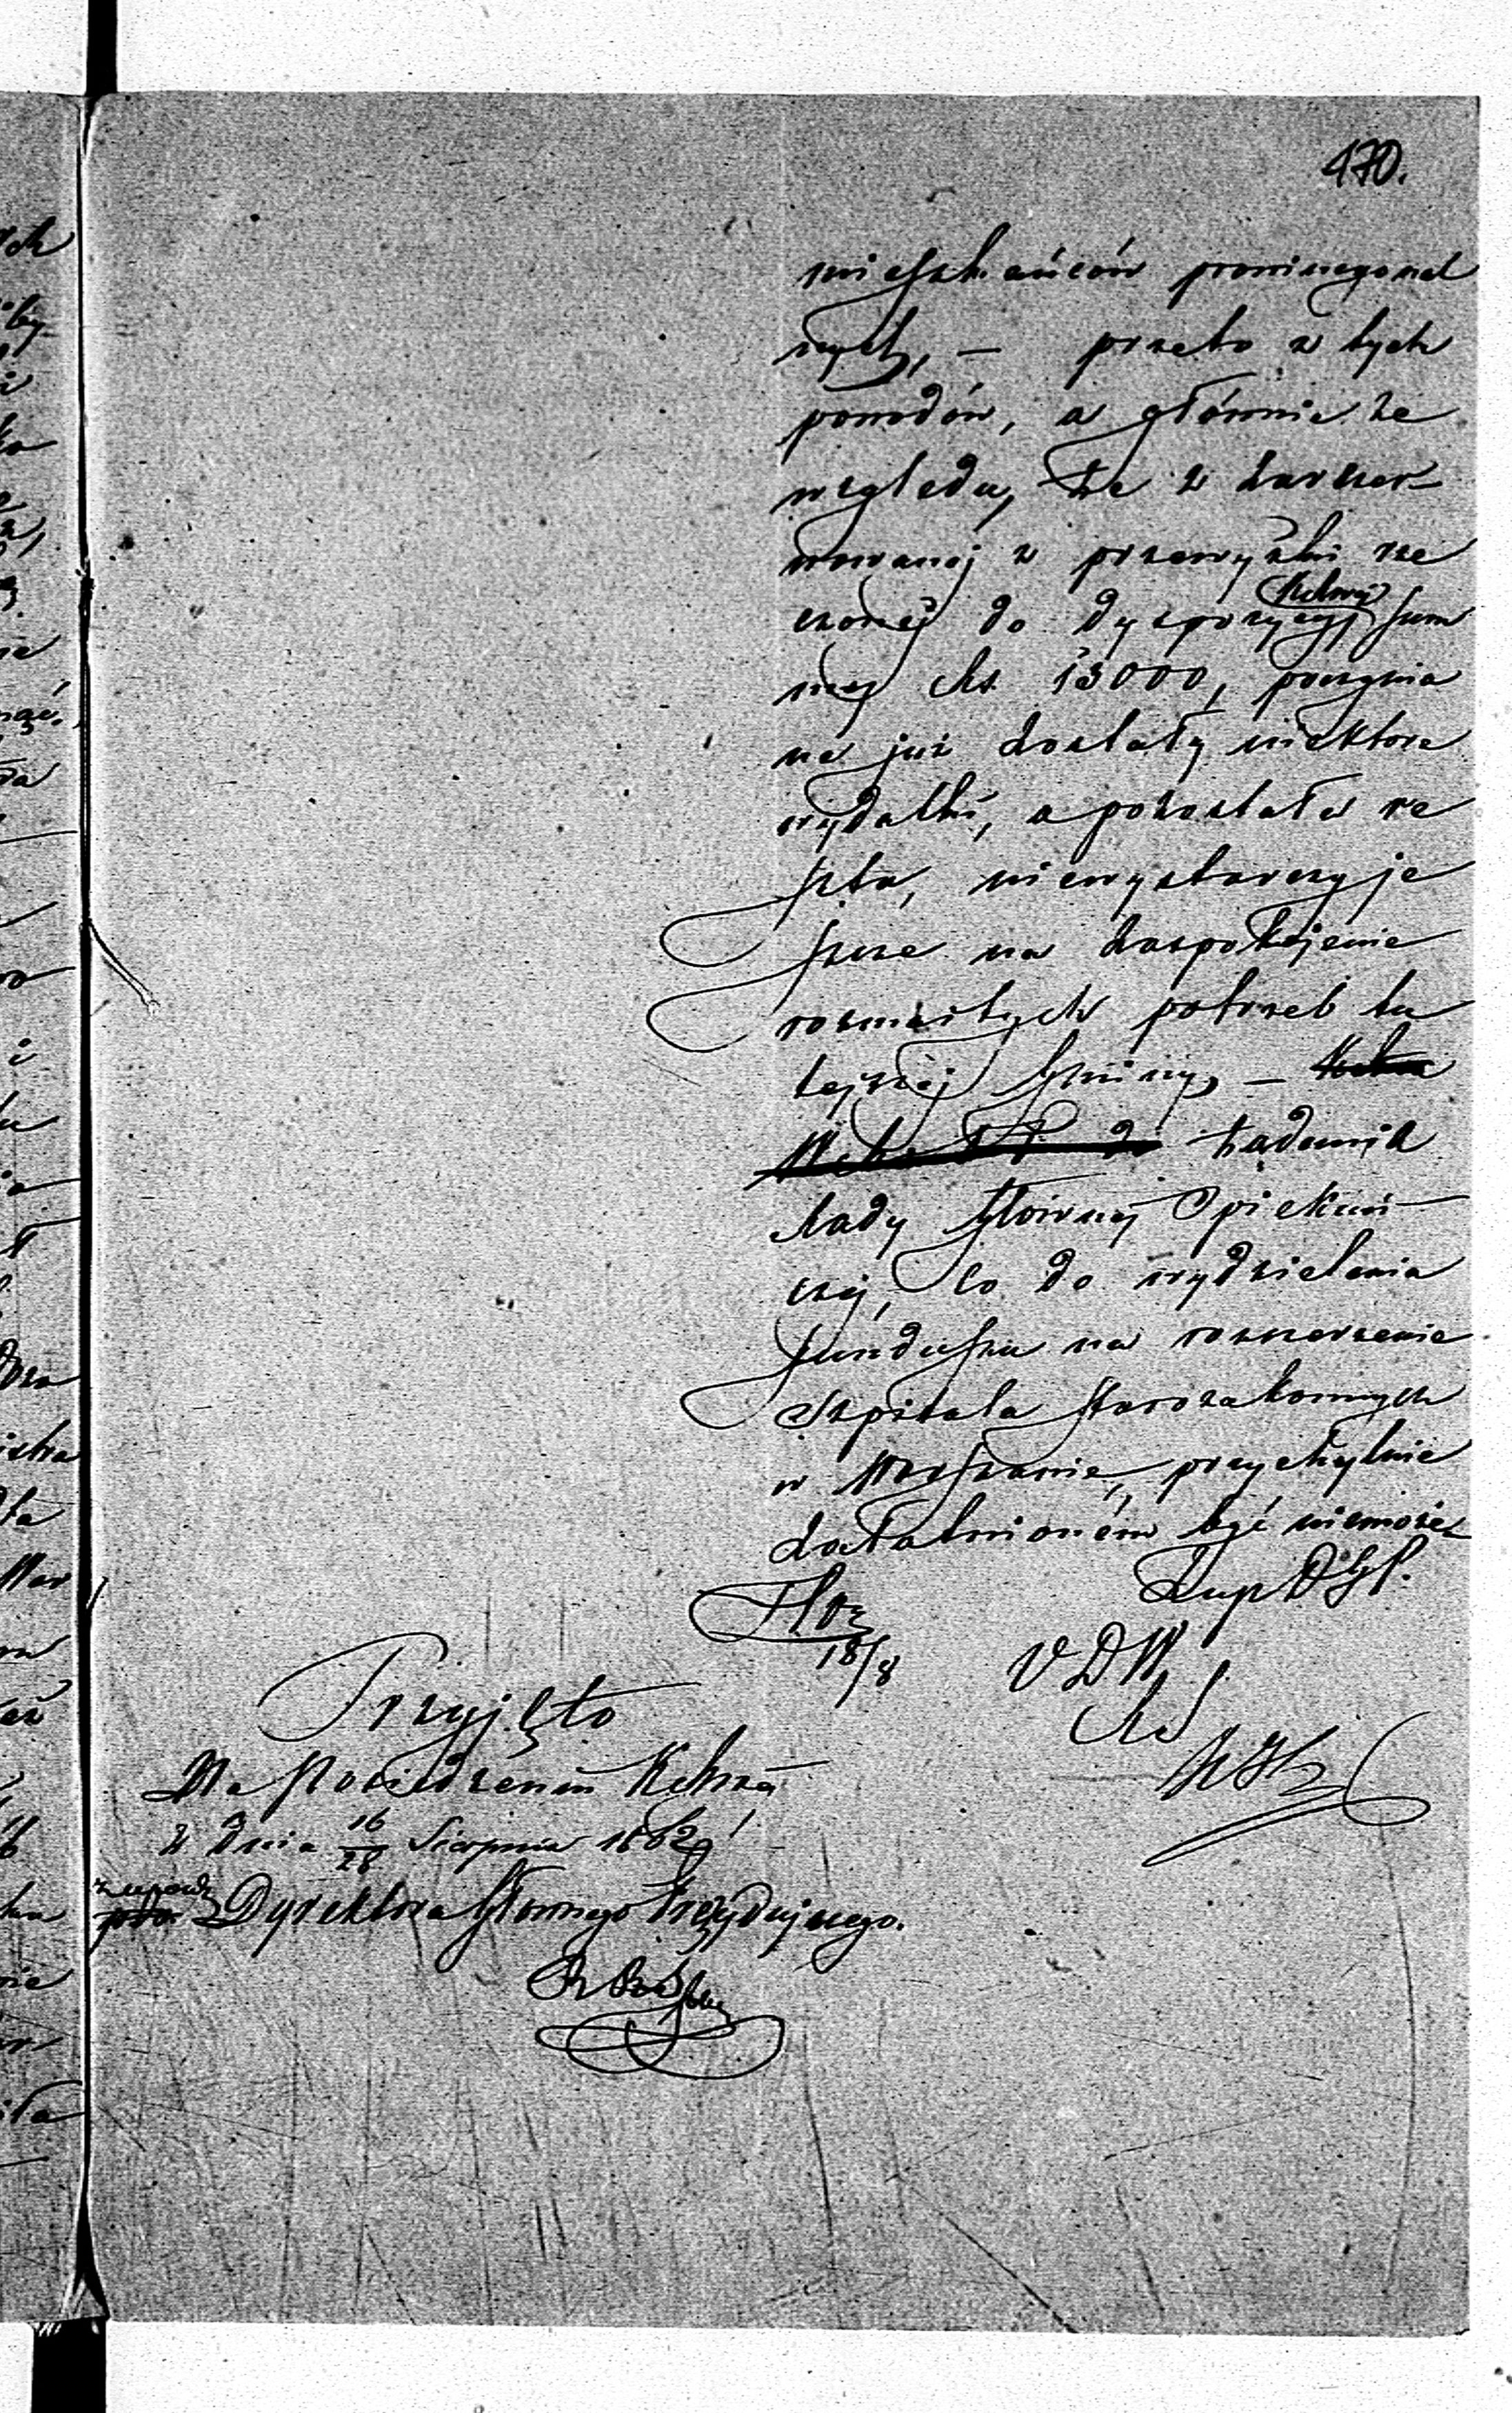 470.
mieszkańców prowincyonal
nych, — przeto z tych
powodów, a głównie ze
względu, że z zarezer-
wowanej z przewyżki rze
czonej do dyspozycyi sum
my Rs. 13000, poczynio
ne już zostały niektóre
wydatki, a pozostała re
szta, niewystarczy je
szcze na zaspokojenie
rozmaitych potrzeb tu
tejszej Gminy, —
żądaniu
Rady Głównej Opiekuń
czej, co do wydzielenia
funduszu na rozszerzenie
Szpitala Starozakonnych
w Warszawie, przychylnie
zadatnioném być niemoże
Z up D Gł.
18/8
V D W
Przyjęto
Na Posiedzeniu
z dnia 16/28 Sierpnia 1862
z upow Dyrektora Głównego Prezydującego.